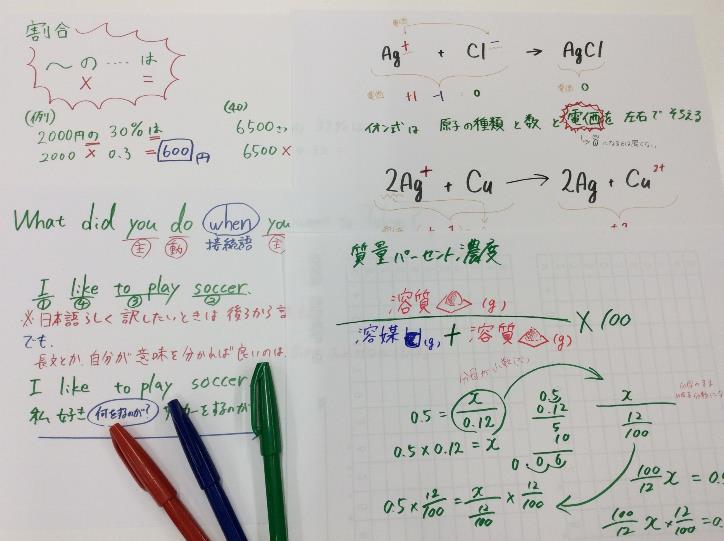 割合
～の‥‥は
× =
(例)
2000円の 30%は
2000 × 0.3 = 600 円
6500
6500 ×
What did you do when you
主 動 接続語 主
I like to play soccer.
① ④ ③ ②
※日本語らしく訳したいときは後ろから
でも、
長文とか、自分が意味を分かれば良いのは、
I like to play soccer
私 好き 何をするのが? サッカーをするのが
Ag⁺ + Cl⁻ → AgCl
電価 +1 -1 0 電価 0
イオン式は 原子の種類と数と電価を左右でそろえる
2Ag⁺ + Cu → 2Ag + Cu²⁺
+2
質量パーセント濃度
溶質(g)
溶媒(g) + 溶質(g)
× 100
分母が小数
0.5 = x/0.12
0.5 × 0.12 = x
0.5
0.12
5
10
0.06
x
12/100
100/12 x = 0.
0.5 × 12/100 = x/(12/100) × 12/100
100/12 x × 12/100 = 0